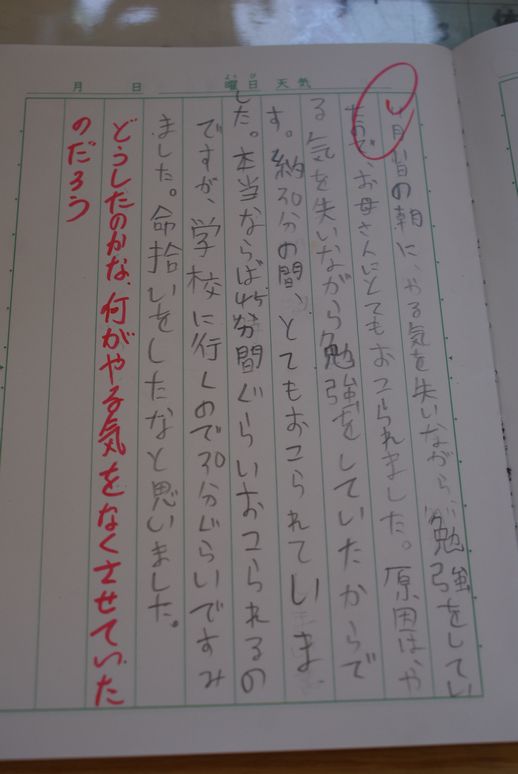 月 日 曜日 天気
よう び
の朝に、やる気を失いながら勉強をしてい
たので お母さんにとてもおこられました。原因は、や
る気を失いながら勉強をしていたからで
す。約30分の間、とてもおこられていま
した。本当ならば45分間ぐらいおこられるの
ですが、学校に行くので30分ぐらいですみ
ました。命拾いをしたなと思いました。
どうしたのかな、何がやる気をなくさせていた
のだろう